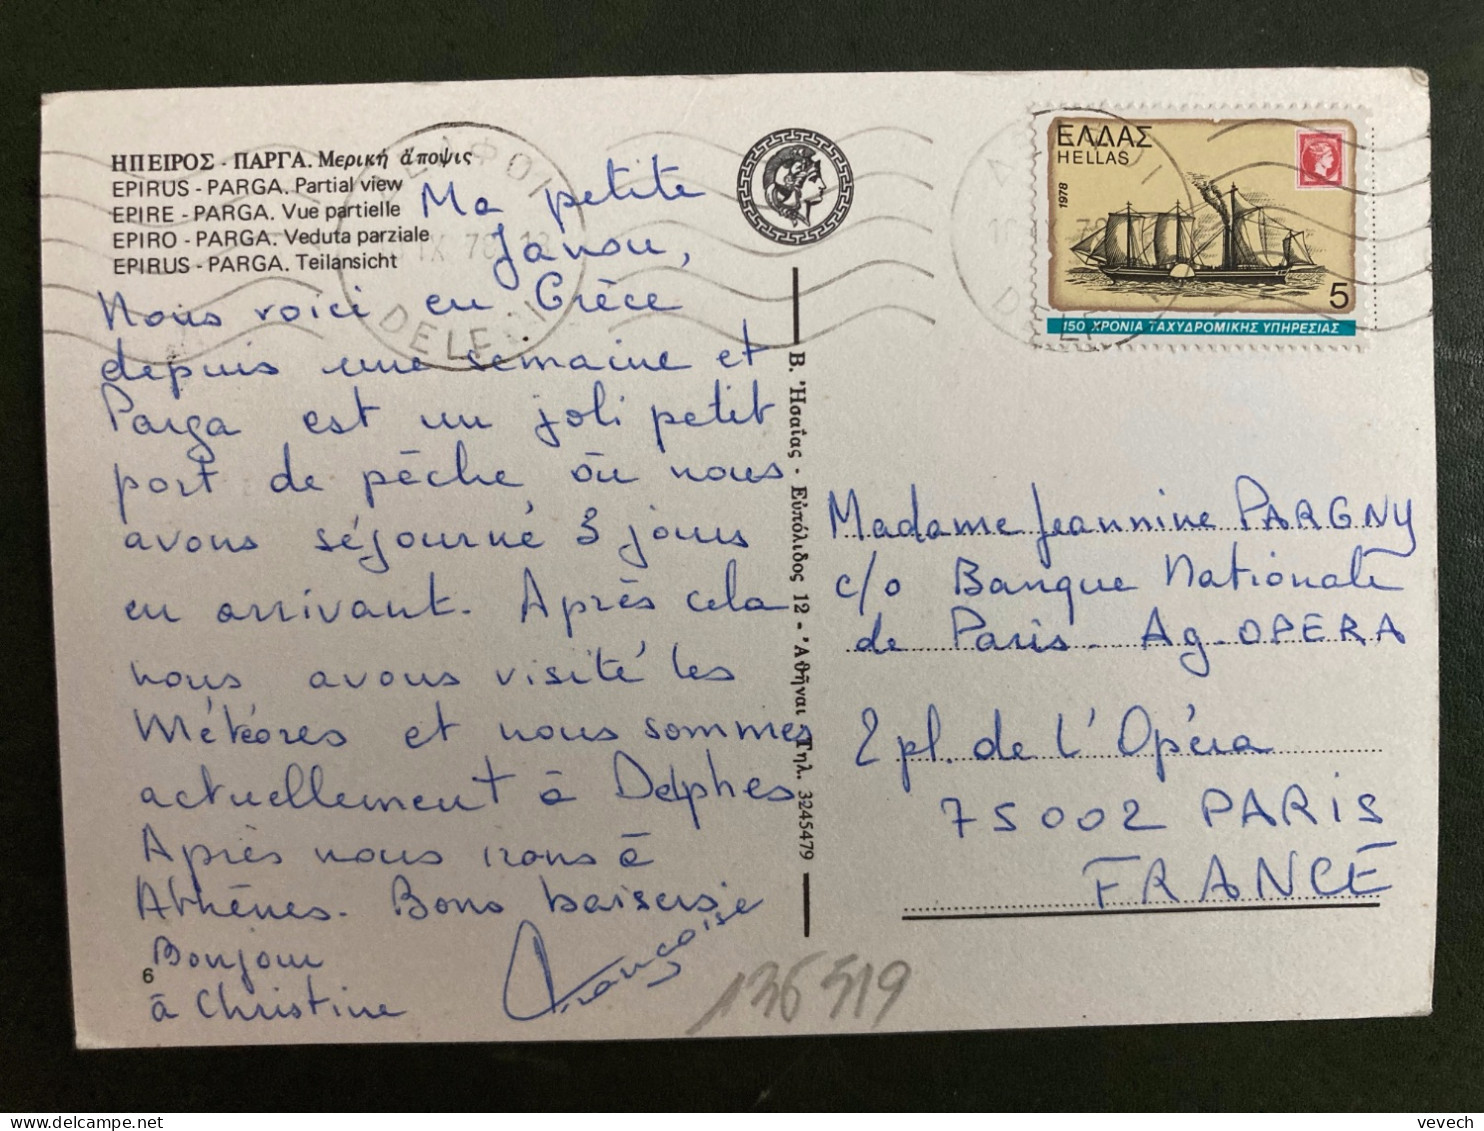 ΗΠΕΙΡΟΣ - ΠΑΡΓΑ. Μερική ἄποψις
EPIRUS - PARGA. Partial view
EPIRE - PARGA. Vue partielle
EPIRO - PARGA. Veduta parziale
EPIRUS - PARGA. Teilansicht
Ma petite
Janou,
Nous voici en Grèce
depuis une semaine et
Parga est un joli petit
port de pêche où nous
avons séjourné 3 jours
en arrivant. Après cela
nous avons visité les
Météores et nous sommes
actuellement à Delphes
Après nous irons à
Athènes. Bons baisers
Bonjour
à Christine
Françoise
6
Β. Ἠσαΐας - Εὐπόλιδος 12 - Ἀθῆναι - Τηλ. 3245479
ΔΕΛΦΟΙ
IX 78 12
DELFOI
ΕΛΛΑΣ
HELLAS
1978
5
150 ΧΡΟΝΙΑ ΤΑΧΥΔΡΟΜΙΚΗΣ ΥΠΗΡΕΣΙΑΣ
Madame Jeannine PARGNY
c/o Banque Nationale
de Paris. Ag. OPERA
2 pl. de l'Opéra
75002 PARIS
FRANCE
136519
vevech